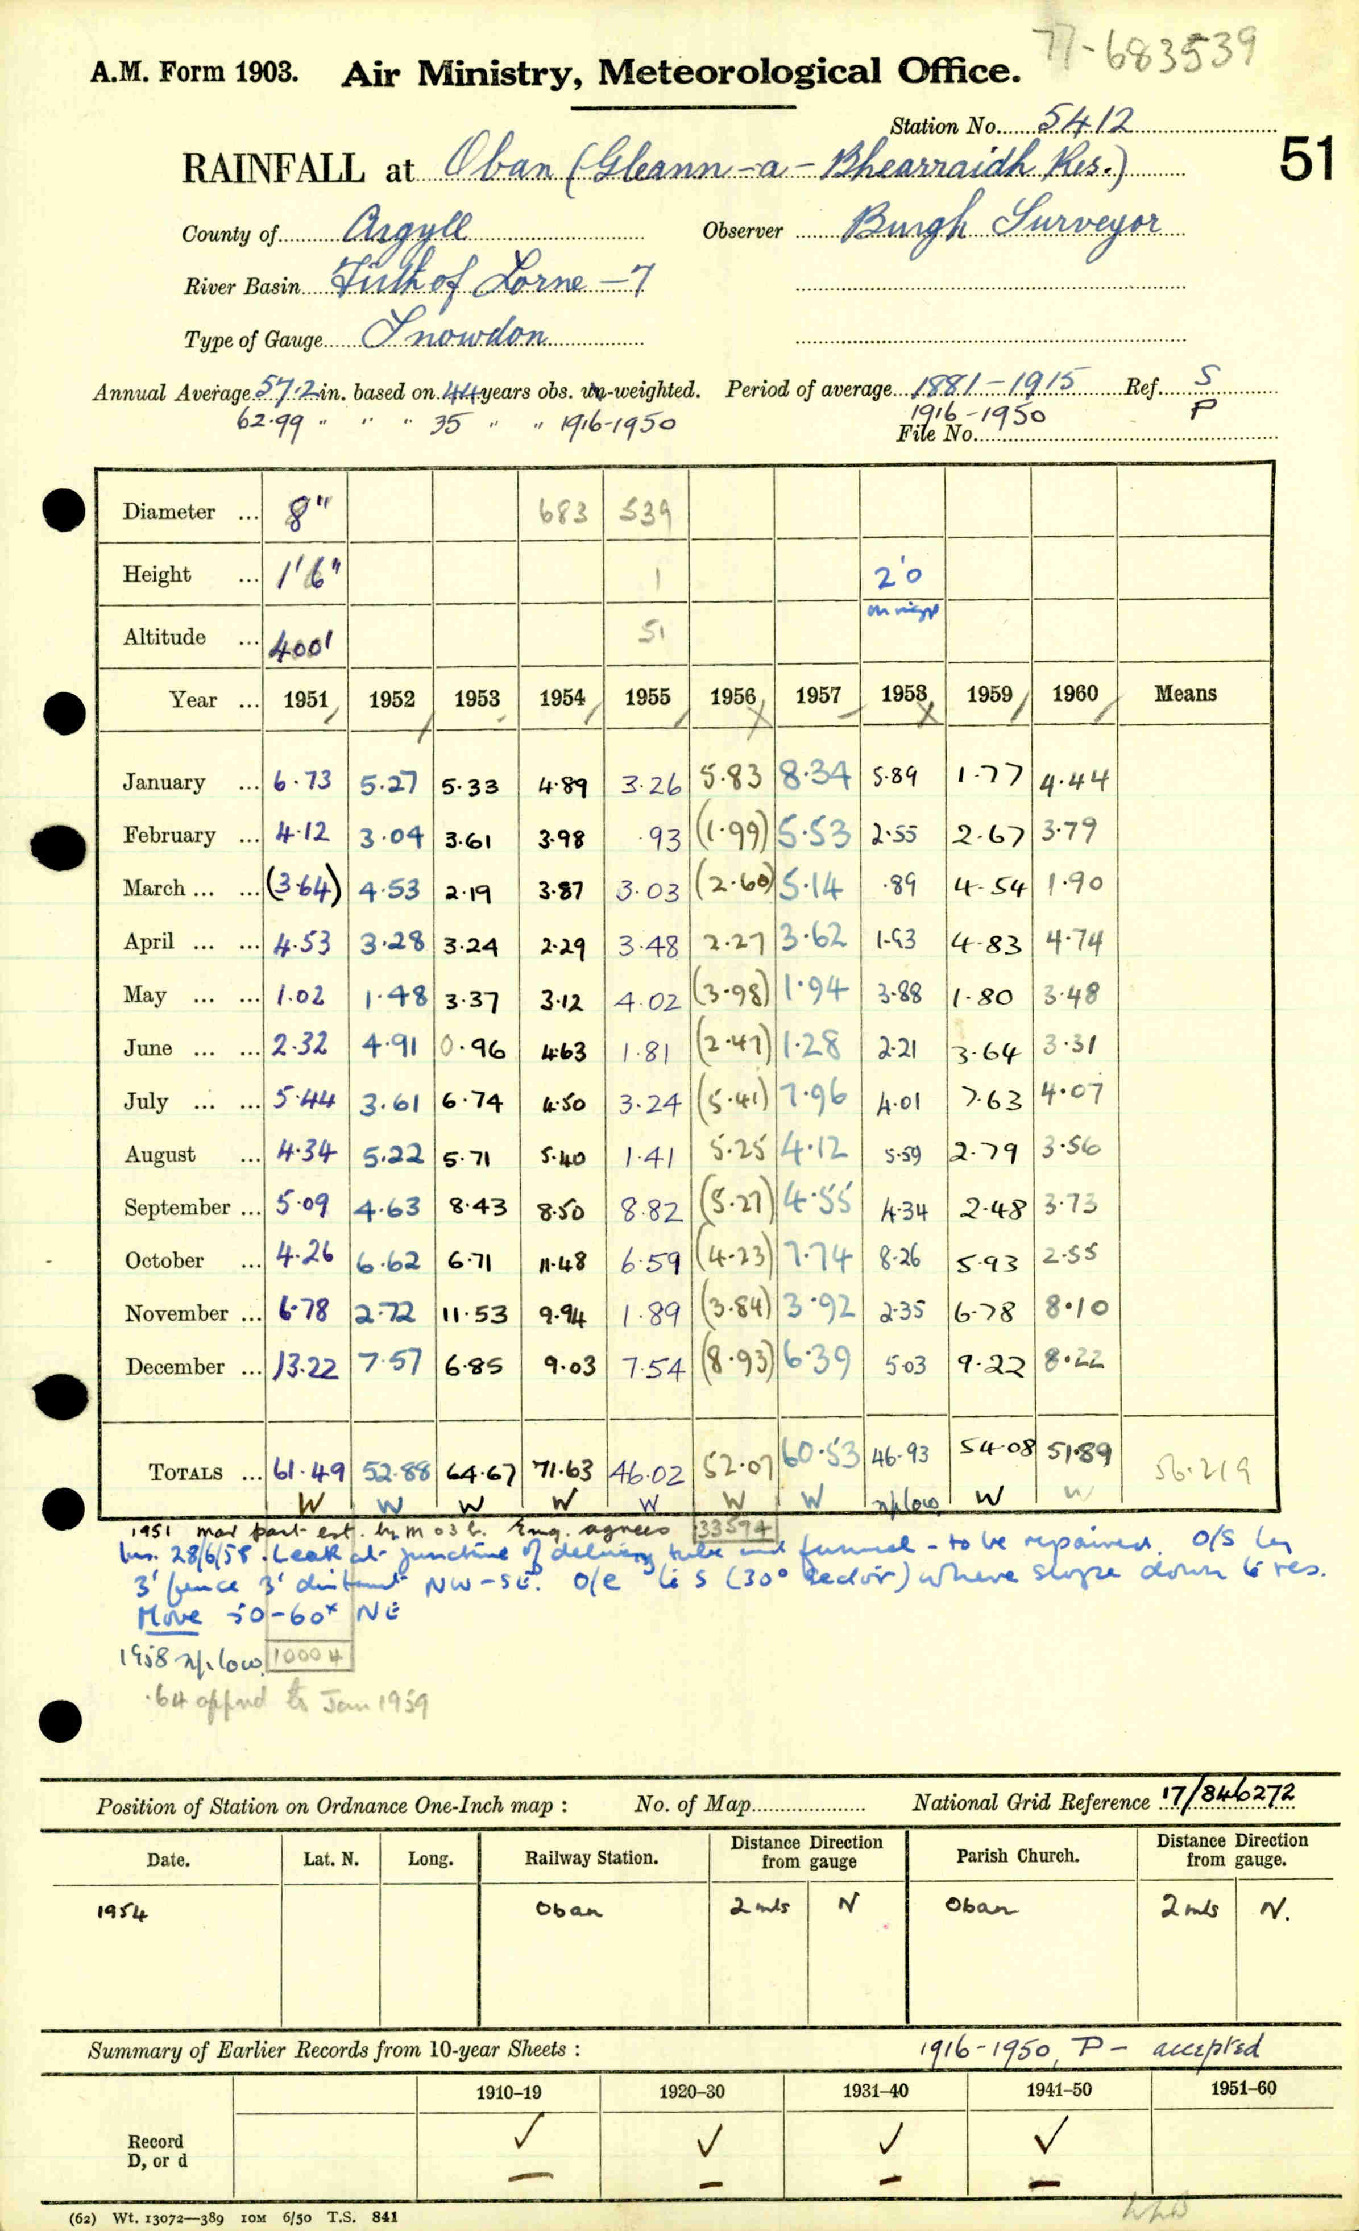 77-683539
A.M. Form 1903. Air Ministry, Meteorological Office.
Station No. 5412
51
RAINFALL at Oban (Gleann-a-Bhearraidh Res.)
County of Argyll Observer Burgh Surveyor
River Basin Firth of Lorne - 7
Type of Gauge Snowdon
Annual Average 57.2 in. based on 44 years obs. un-weighted. Period of average 1881-1915 Ref. S
62.99 " " " 35 " " 1916-1950 1916-1950 P
File No.
Diameter ... 8" 683 539
Height ... 1'6" 1 2'0
Altitude ... 400' 51
Year ... 1951 1952 1953 1954 1955 1956 1957 1958 1959 1960 Means
January ... 6.73 5.27 5.33 4.89 3.26 5.83 8.34 5.89 1.77 4.44
February ... 4.12 3.04 3.61 3.98 .93 (1.99) 5.53 2.55 2.67 3.79
March ... ... (3.64) 4.53 2.19 3.87 3.03 (2.60) 5.14 .89 4.54 1.90
April ... ... 4.53 3.28 3.24 2.29 3.48 2.27 3.62 1.93 4.83 4.74
May ... ... 1.02 1.48 3.37 3.12 4.02 (3.98) 1.94 3.88 1.80 3.48
June ... ... 2.32 4.91 0.96 4.63 1.81 (2.47) 1.28 2.21 3.64 3.31
July ... ... 5.44 3.61 6.74 4.50 3.24 (5.41) 7.96 4.01 7.63 4.07
August ... 4.34 5.22 5.71 5.40 1.41 5.25 4.12 5.59 2.79 3.56
September ... 5.09 4.63 8.43 8.50 8.82 (5.27) 4.55 4.34 2.48 3.73
October ... 4.26 6.62 6.71 11.48 6.59 (4.23) 7.74 8.26 5.93 2.55
November ... 6.78 2.72 11.53 9.94 1.89 (3.84) 3.92 2.35 6.78 8.10
December ... 13.22 7.57 6.85 9.03 7.54 (8.93) 6.39 5.03 9.22 8.22
TOTALS ... 61.49 52.88 64.67 71.63 46.02 52.07 60.53 46.93 54.08 51.89 56.219
W W W W W W W n/p low W W
1951 mar part est. by m o 3 b. Eng. agrees 33594
Ins. 28/6/58. Leak at junction of delivery tube and funnel - to be repaired. O/S by
3' fence 3' distant NW-SE. O/E to S (30° ) where slope down to res.
Move 50-60ˣ NE
1958 n/p. low. 10004
.64 apprd to Jan 1959
Position of Station on Ordnance One-Inch map : No. of Map National Grid Reference 17/846272
Date. Lat. N. Long. Railway Station. Distance from gauge Direction Parish Church. Distance from gauge. Direction
1954 Oban 2 mls N Oban 2 mls N.
Summary of Earlier Records from 10-year Sheets : 1916-1950, P - accepted
1910-19 1920-30 1931-40 1941-50 1951-60
Record ✓ ✓ ✓ ✓
D, or d — — — —
(62) Wt. 13072—389 10M 6/50 T.S. 841